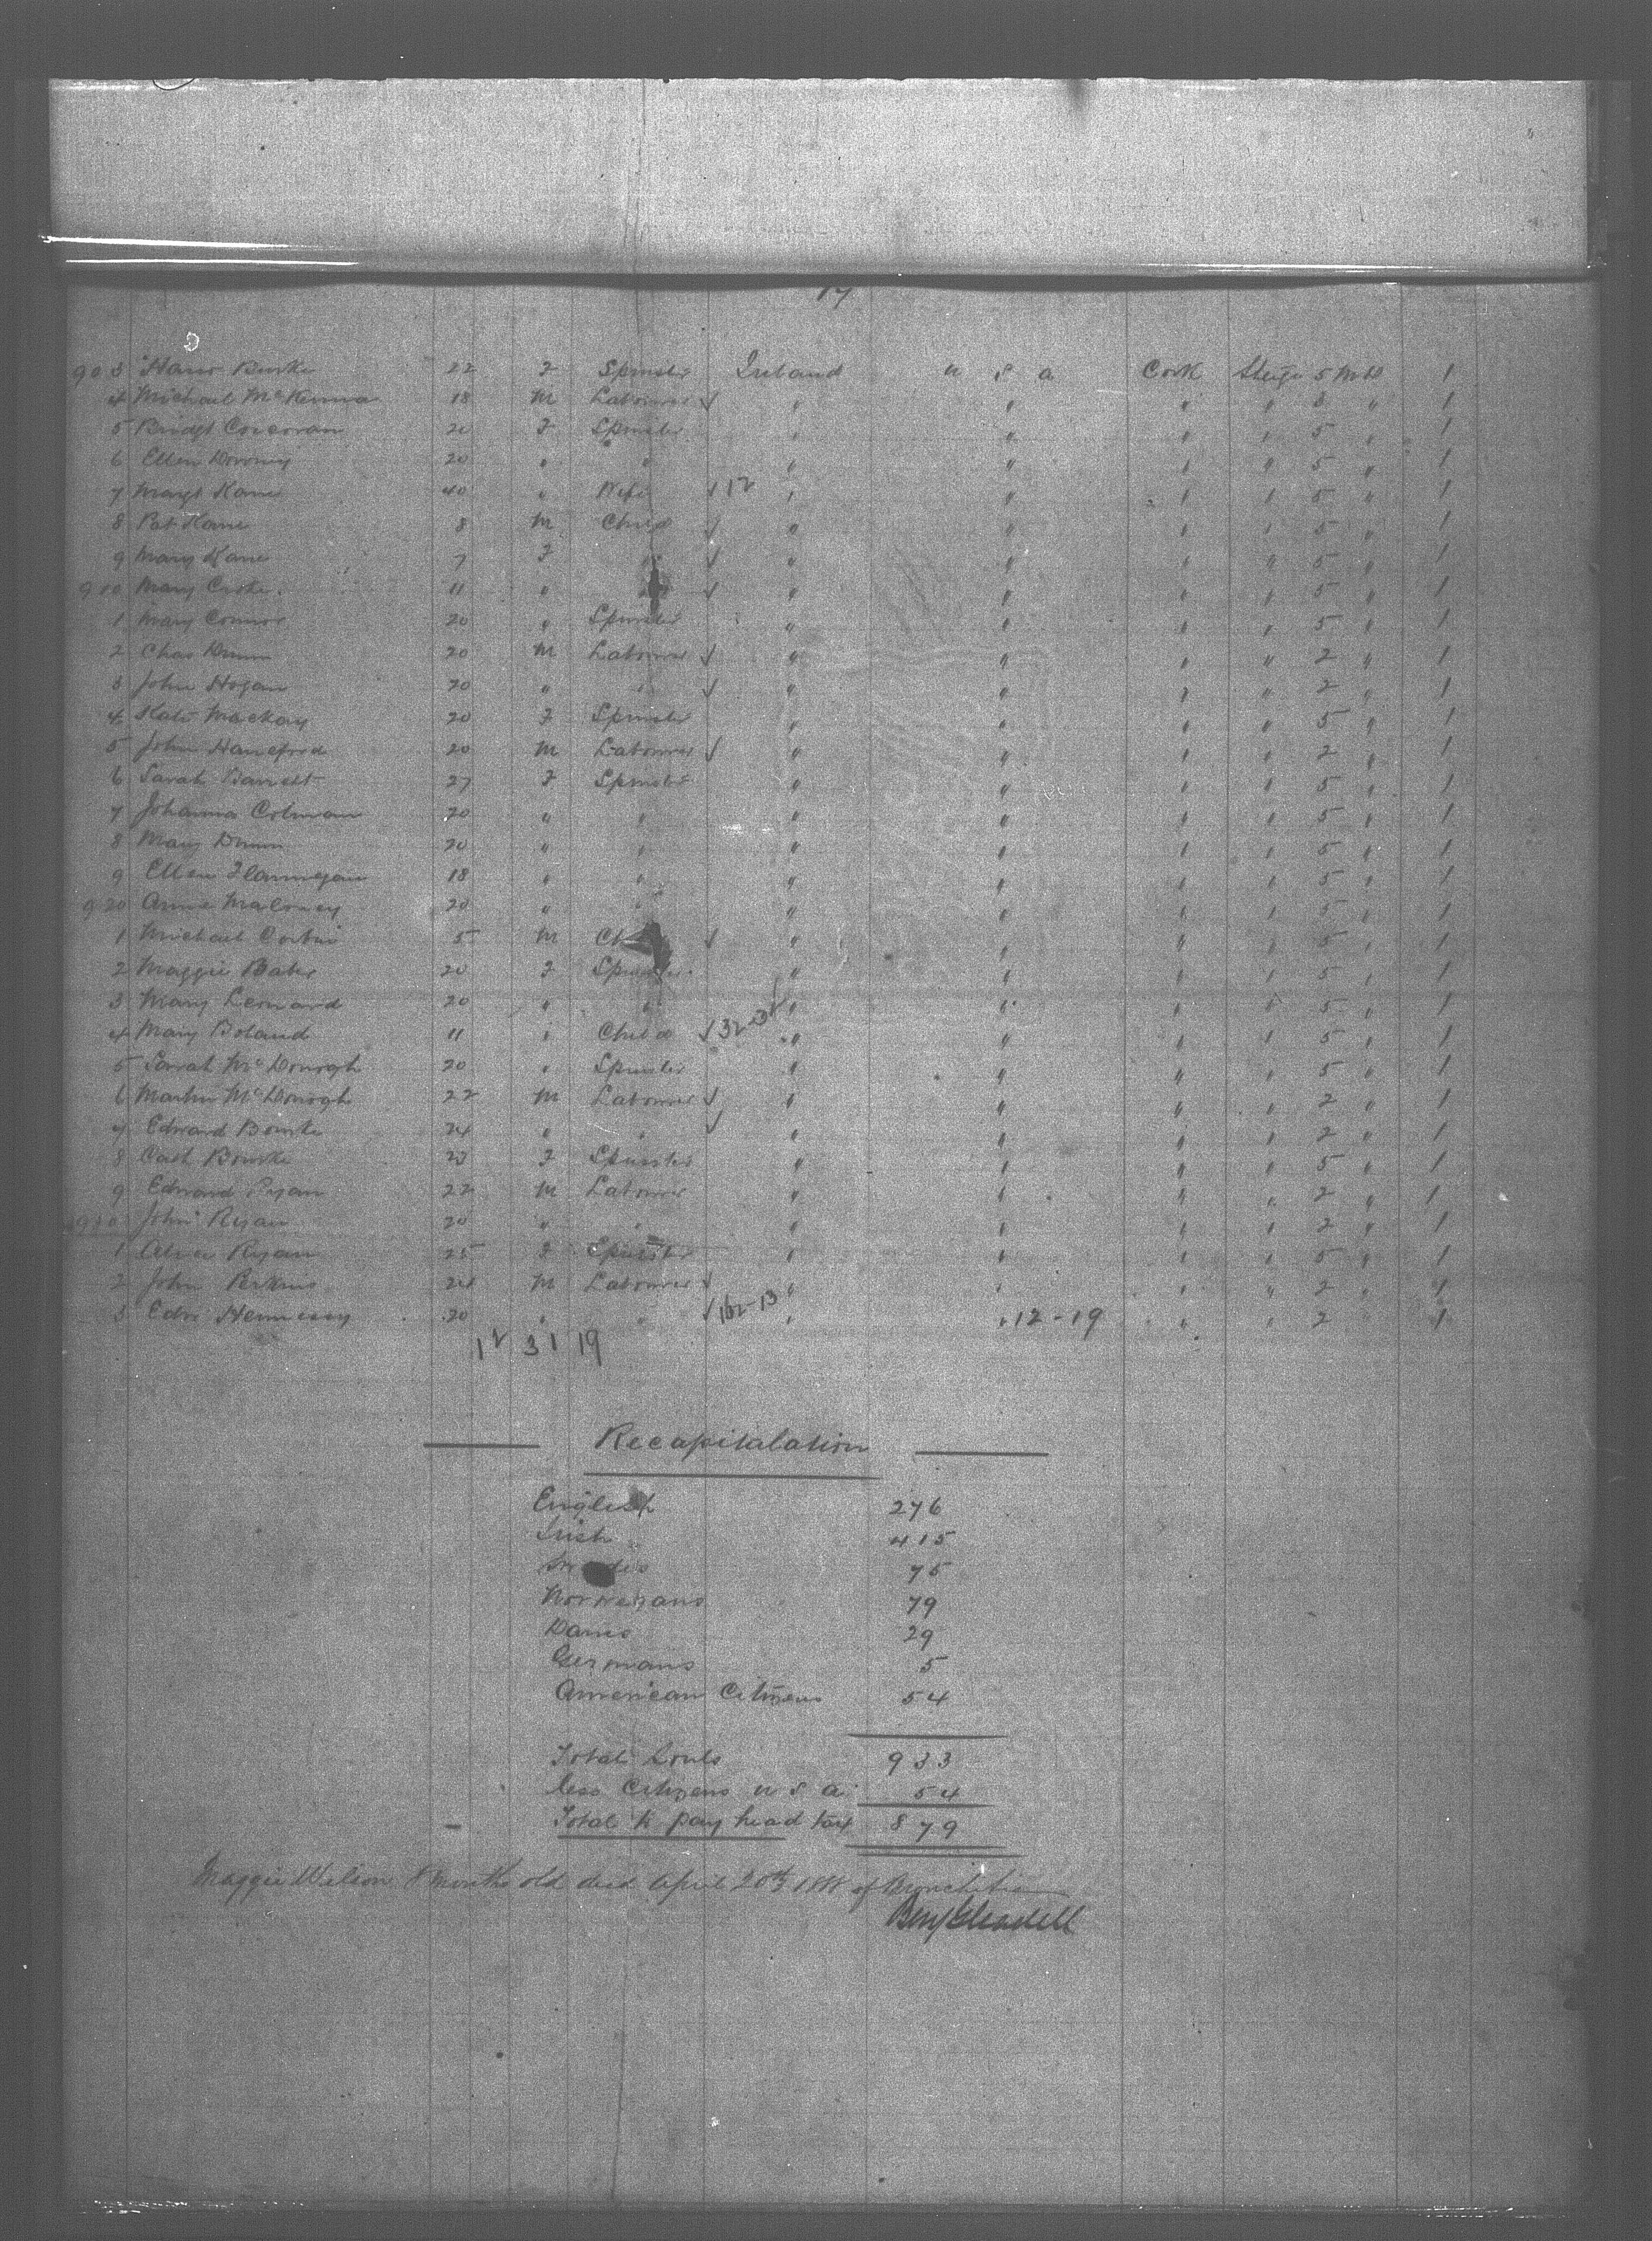 17
903 Burke 22 F Spinster Ireland U S A Cork Steige 5 Mid 1
4 Michael McKenna 18 M Labourer √ " " " " 5 " 1
5 Bridgt Corcoran F Spinster " " " " 5 " 1
6 Ellen 20 " " " " " " 5 " 1
7 Margt Kane 40 " Wife √ 12 " " " " 5 " 1
8 Pat Kane 8 M Child √ " " " " 5 " 1
9 Mary Kane 7 F " √ " " " " 5 " 1
910 Mary 11 " √ " " " " 5 " 1
1 Mary Connor 20 " Spinster " " " " 5 " 1
2 Chas Dunn 20 M Labourer √ " " " " 2 " 1
3 John Hogan 20 " " √ " " " " 2 " 1
4 Kate Mackay 20 F Spinster " " " " 5 " 1
5 John Haneford 20 M Labourer √ " " " " 2 " 1
6 Sarah Barrett 27 F Spinster " " " " 5 " 1
7 Johanna Colman 20 " " " " " " 5 " 1
8 Mary Dunn 20 " " " " " " 5 " 1
9 Ellen Flannegan 18 " " " " " " 5 " 1
920 Annie Maloney 20 " " " " " " 5 " 1
1 Michael 5 M Ch √ " " " " 5 " 1
2 Maggie 20 F Spinster " " " " 5 " 1
3 Mary Lennard 20 " " " " " " 5 " 1
4 Mary Boland 11 " Child √ " " " " 5 " 1
5 Sarah McDonogh 20 " Spinster " " " " 5 " 1
6 Martin McDonogh 22 M Labourer √ " " " " 2 " 1
7 Edward Bourke 24 " " √ " " " " 2 " 1
8 Cath Bourke 23 F Spinster " " " " 5 " 1
9 Edward Ryan 22 M Labourer " " " " 2 " 1
930 John Ryan 20 " " " " " " 2 " 1
1 Ryan 25 F Spinster " " " " 5 " 1
2 John Perkins 24 M Labourer √ " " " " 2 " 1
3 Edw Hennessy 20 " " √ " " 12-19 " " 2 " 1
12 31 19
Recapitalation
English 276
Irish 415
Swedes 75
Norwegans 79
Danes 29
Germans 5
American Citizens 54
Total Souls 933
less Citizens U S A 54
Total to pay head tax 879
Maggie Wilson 8 months old died April 20th 1888 of Bronchitis
Benj Gleadell